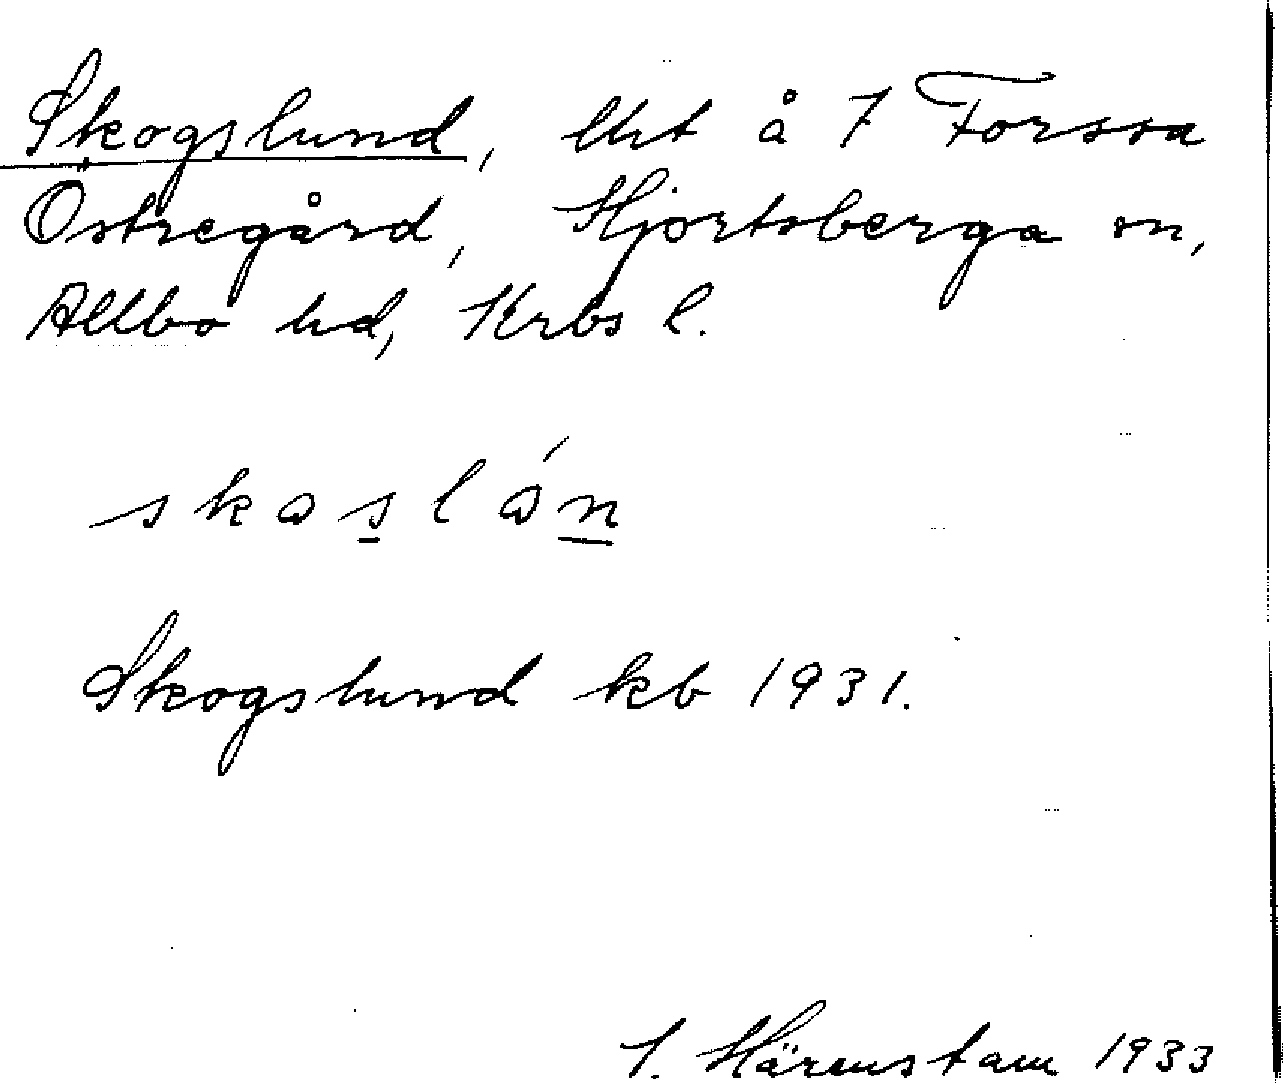 Skogslund, lht å 7 Forssa
Östregård, Hjortsberga sn,
Allbo hd, Krbs l.
skɷslɷ́n
Skogslund kb 1931.
Härenstam 1933